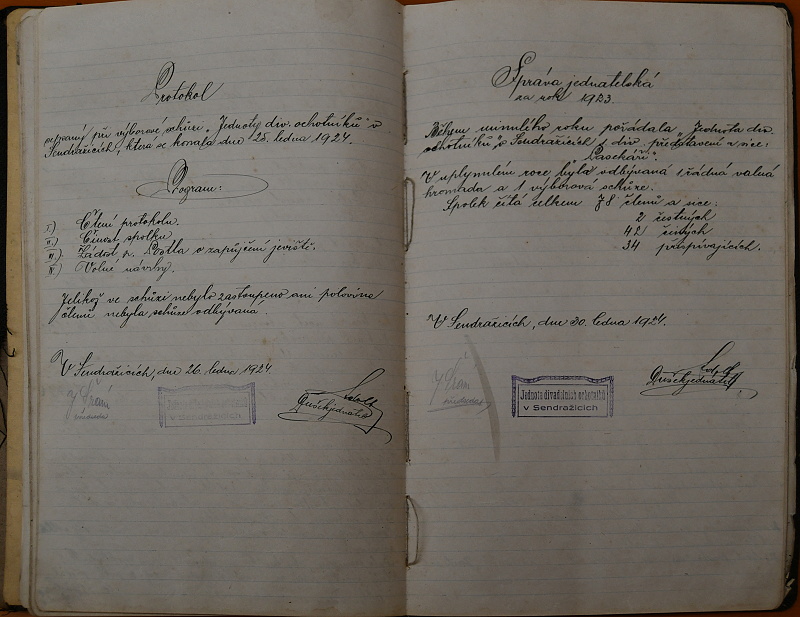 Protokol
sepsaný při výborové schůzi „Jednoty div. ochotníků" v
Sendražicích, která se konala dne 25. ledna 1924.
Program:
I.) Čtení protokolu.
II.) Činnost spolku
III.) Žádost p. o zapůjčení jeviště.
IV.) Volné návrhy.
Jelikož ve schůzi nebylo zastoupeno ani polovina
členů nebyla schůze odbývaná.
V Sendražicích, dne 26. ledna 1924
Jednota divadelních ochotníků
v Sendražicích
jednatel
Správa jednatelská
za rok 1923.
Během minulého roku pořádala „Jednota div.
ochotníků" v Sendražicích 1 div. představení a sice:
„Pasekáři".
V uplynulém roce byla odbývaná 1 řádná valná
hromada a 1 výborová schůze.
Spolek čítá celkem 78 členů a sice:
2 čestných
42 činných
34 přispívajících.
V Sendražicích, dne 30. ledna 1924.
Jednota divadelních ochotníků
v Sendražicích
jednatel